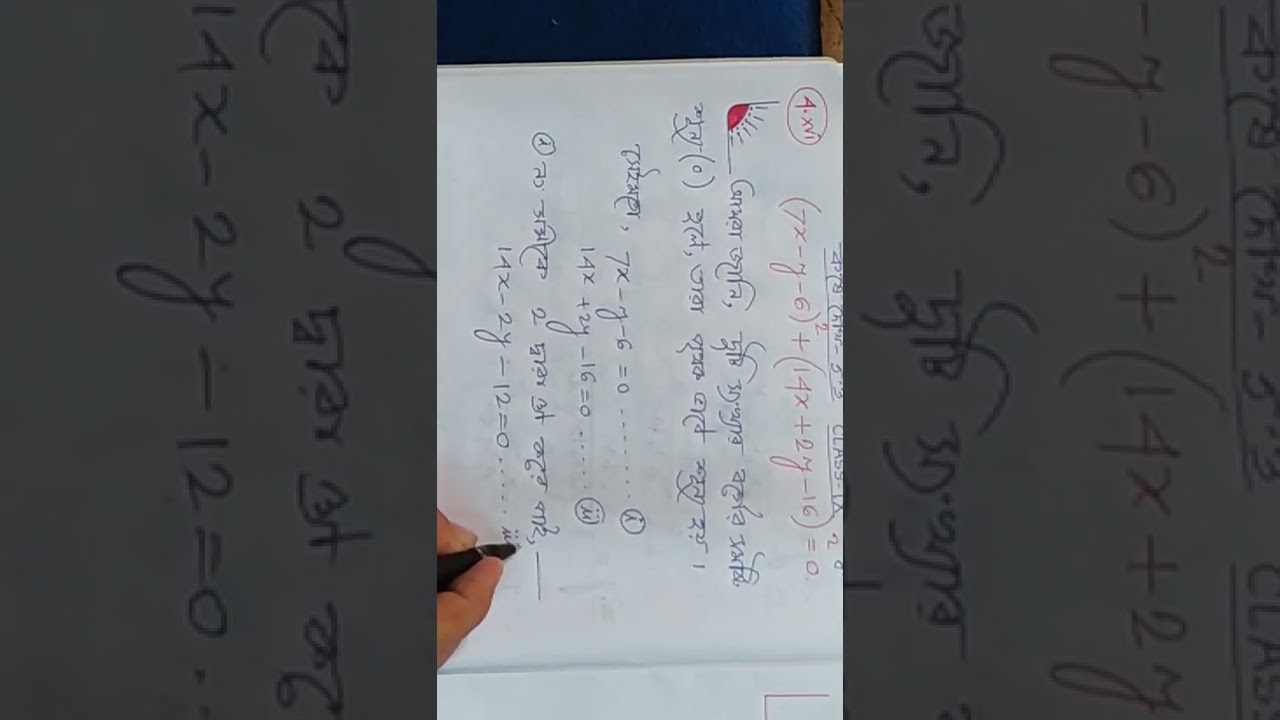 কষে দেখি- 5.3 CLASS-IX
4.xvi (7x-y-6)² + (14x+2y-16)² = 0
আমরা জানি, দুটি সংখ্যার বর্গের সমষ্টি
শূন্য (০) হলে, তারা পৃথক ভাবে শূন্য হয়।
7x-y-6=0 .......... (i)
14x+2y-16=0 ....... (ii)
(i) নং সমীকরণকে 2 দ্বারা গুণ করে পাই,—
14x-2y-12=0 ...... iii